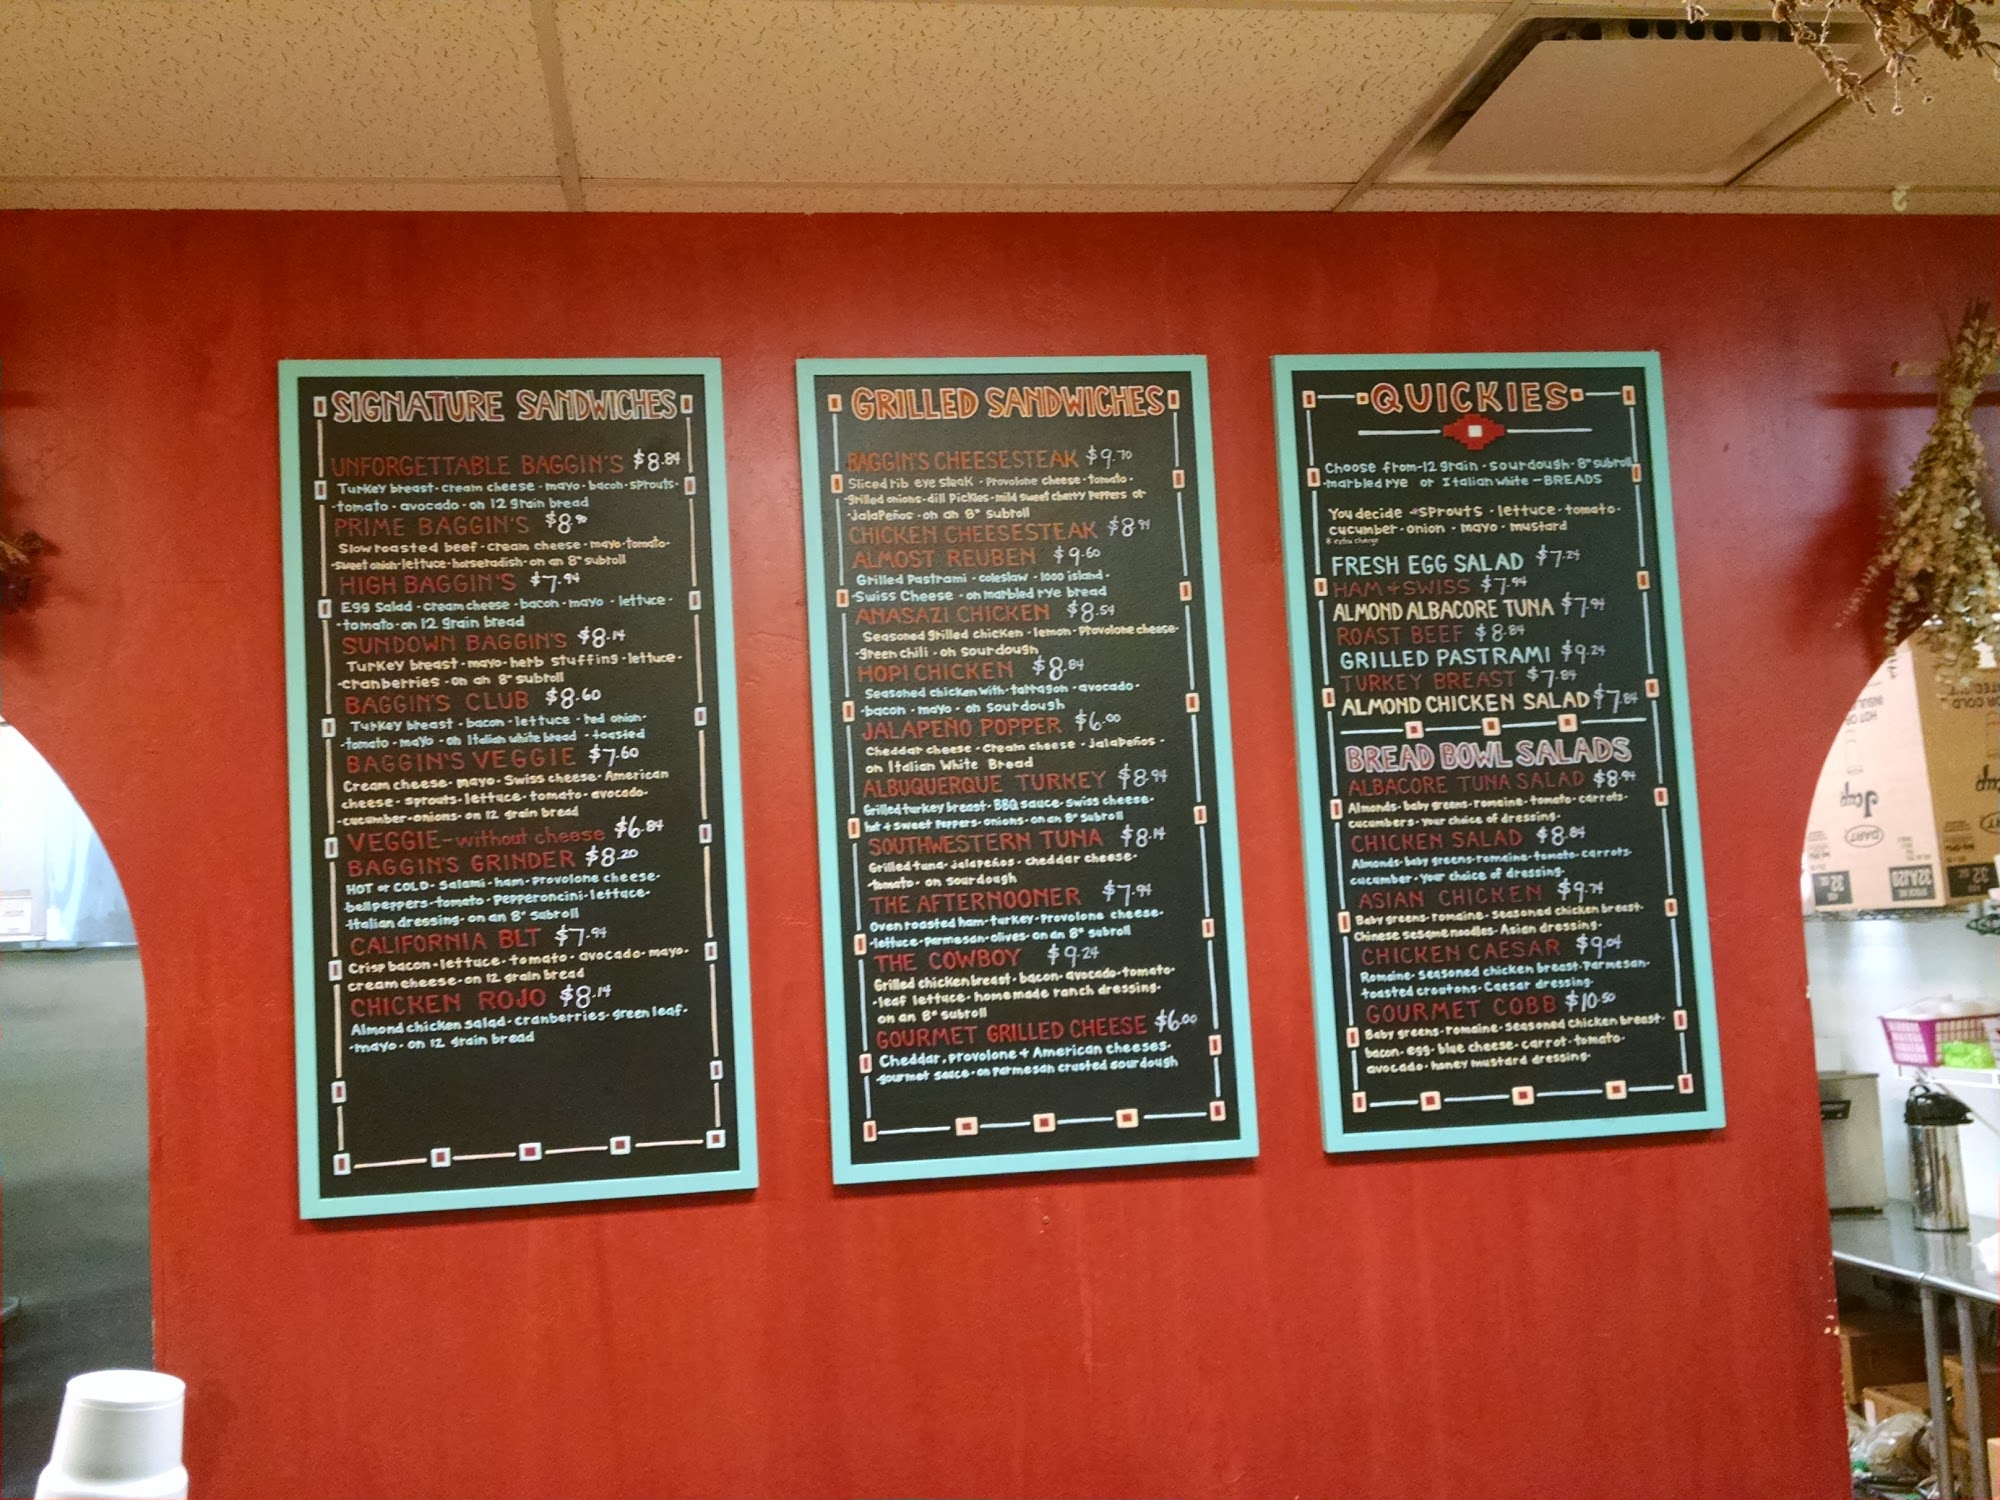 SIGNATURE SANDWICHES
UNFORGETTABLE BAGGIN'S $8.84
Turkey breast · cream cheese · mayo · bacon · sprouts ·
· tomato · avocado · on 12 grain bread
PRIME BAGGIN'S $8.90
Slow roasted beef · cream cheese · mayo · tomato ·
· sweet onion · lettuce · horseradish · on an 8" subroll
HIGH BAGGIN'S $7.94
Egg Salad · cream cheese · bacon · mayo · lettuce ·
· tomato · on 12 grain bread
SUNDOWN BAGGIN'S $8.14
Turkey breast · mayo · herb stuffing · lettuce ·
· cranberries · on an 8" subroll
BAGGIN'S CLUB $8.60
Turkey breast · bacon · lettuce · red onion ·
· tomato · mayo · on Italian white bread · toasted
BAGGIN'S VEGGIE $7.60
Cream cheese · mayo · Swiss cheese · American
cheese · sprouts · lettuce · tomato · avocado ·
· cucumber · onions · on 12 grain bread
VEGGIE - without cheese $6.84
BAGGIN'S GRINDER $8.20
HOT or COLD · Salami · ham · Provolone cheese ·
bellpeppers · tomato · Pepperoncini · lettuce ·
· Italian dressing · on an 8" subroll
CALIFORNIA BLT $7.94
Crisp bacon · lettuce · tomato · avocado · mayo ·
cream cheese · on 12 grain bread
CHICKEN ROJO $8.14
Almond chicken salad · cranberries · green leaf ·
· mayo · on 12 grain bread
GRILLED SANDWICHES
BAGGIN'S CHEESESTEAK $9.70
Sliced rib eye steak · Provolone cheese · tomato ·
· grilled onions · dill Pickles · mild sweet cherry Peppers or
· JalaPeños · on an 8" subroll
CHICKEN CHEESESTEAK $8.94
ALMOST REUBEN $9.60
Grilled Pastrami · coleslaw · 1000 island ·
· Swiss Cheese · on marbled rye bread
ANASAZI CHICKEN $8.54
Seasoned grilled chicken · lemon · Provolone cheese ·
· green chili · on sourdough
HOPI CHICKEN $8.84
Seasoned chicken with · tarragon · avocado ·
· bacon · mayo · on sourdough
JALAPEÑO POPPER $6.00
Cheddar cheese · Cream cheese · JalaPeños ·
on Italian White Bread
ALBUQUERQUE TURKEY $8.94
Grilled turkey breast · BBQ sauce · swiss cheese ·
hot + sweet PePPers · onions · on an 8" subroll
SOUTHWESTERN TUNA $8.14
Grilled tuna · jalapeños · cheddar cheese ·
· tomato · on sourdough
THE AFTERNOONER $7.94
Oven roasted ham · turkey · Provolone cheese ·
· lettuce · parmesan · olives · on an 8" subroll
THE COWBOY $9.24
Grilled chicken breast · bacon · avocado · tomato ·
· leaf lettuce · homemade ranch dressing ·
on an 8" subroll
GOURMET GRILLED CHEESE $6.00
Cheddar, provolone + American cheeses ·
· gourmet sauce · on parmesan crusted sourdough
QUICKIES
Choose from - 12 grain · sourdough · 8" subroll
· marbled rye or Italian white - BREADS
You decide · SProuts · lettuce · tomato ·
cucumber · onion · mayo · mustard
extra charge
FRESH EGG SALAD $7.24
HAM + SWISS $7.94
ALMOND ALBACORE TUNA $7.94
ROAST BEEF $8.84
GRILLED PASTRAMI $9.24
TURKEY BREAST $7.84
ALMOND CHICKEN SALAD $7.84
BREAD BOWL SALADS
ALBACORE TUNA SALAD $8.94
Almonds · baby greens · romaine · tomato · carrots ·
cucumbers · your choice of dressing ·
CHICKEN SALAD $8.84
Almonds · baby greens · romaine · tomato · carrots ·
cucumber · your choice of dressing ·
ASIAN CHICKEN $9.74
Baby greens · romaine · seasoned chicken breast ·
Chinese sesame noodles · Asian dressing ·
CHICKEN CAESAR $9.04
Romaine · seasoned chicken breast · Parmesan ·
toasted croutons · Caesar dressing ·
GOURMET COBB $10.50
Baby greens · romaine · seasoned chicken breast ·
bacon · egg · blue cheese · carrot · tomato ·
avocado · honey mustard dressing ·
DART
32AJ20
32